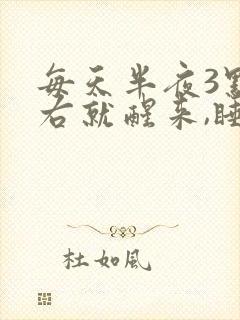 每天半夜3
右就醒来,睡
杜如風